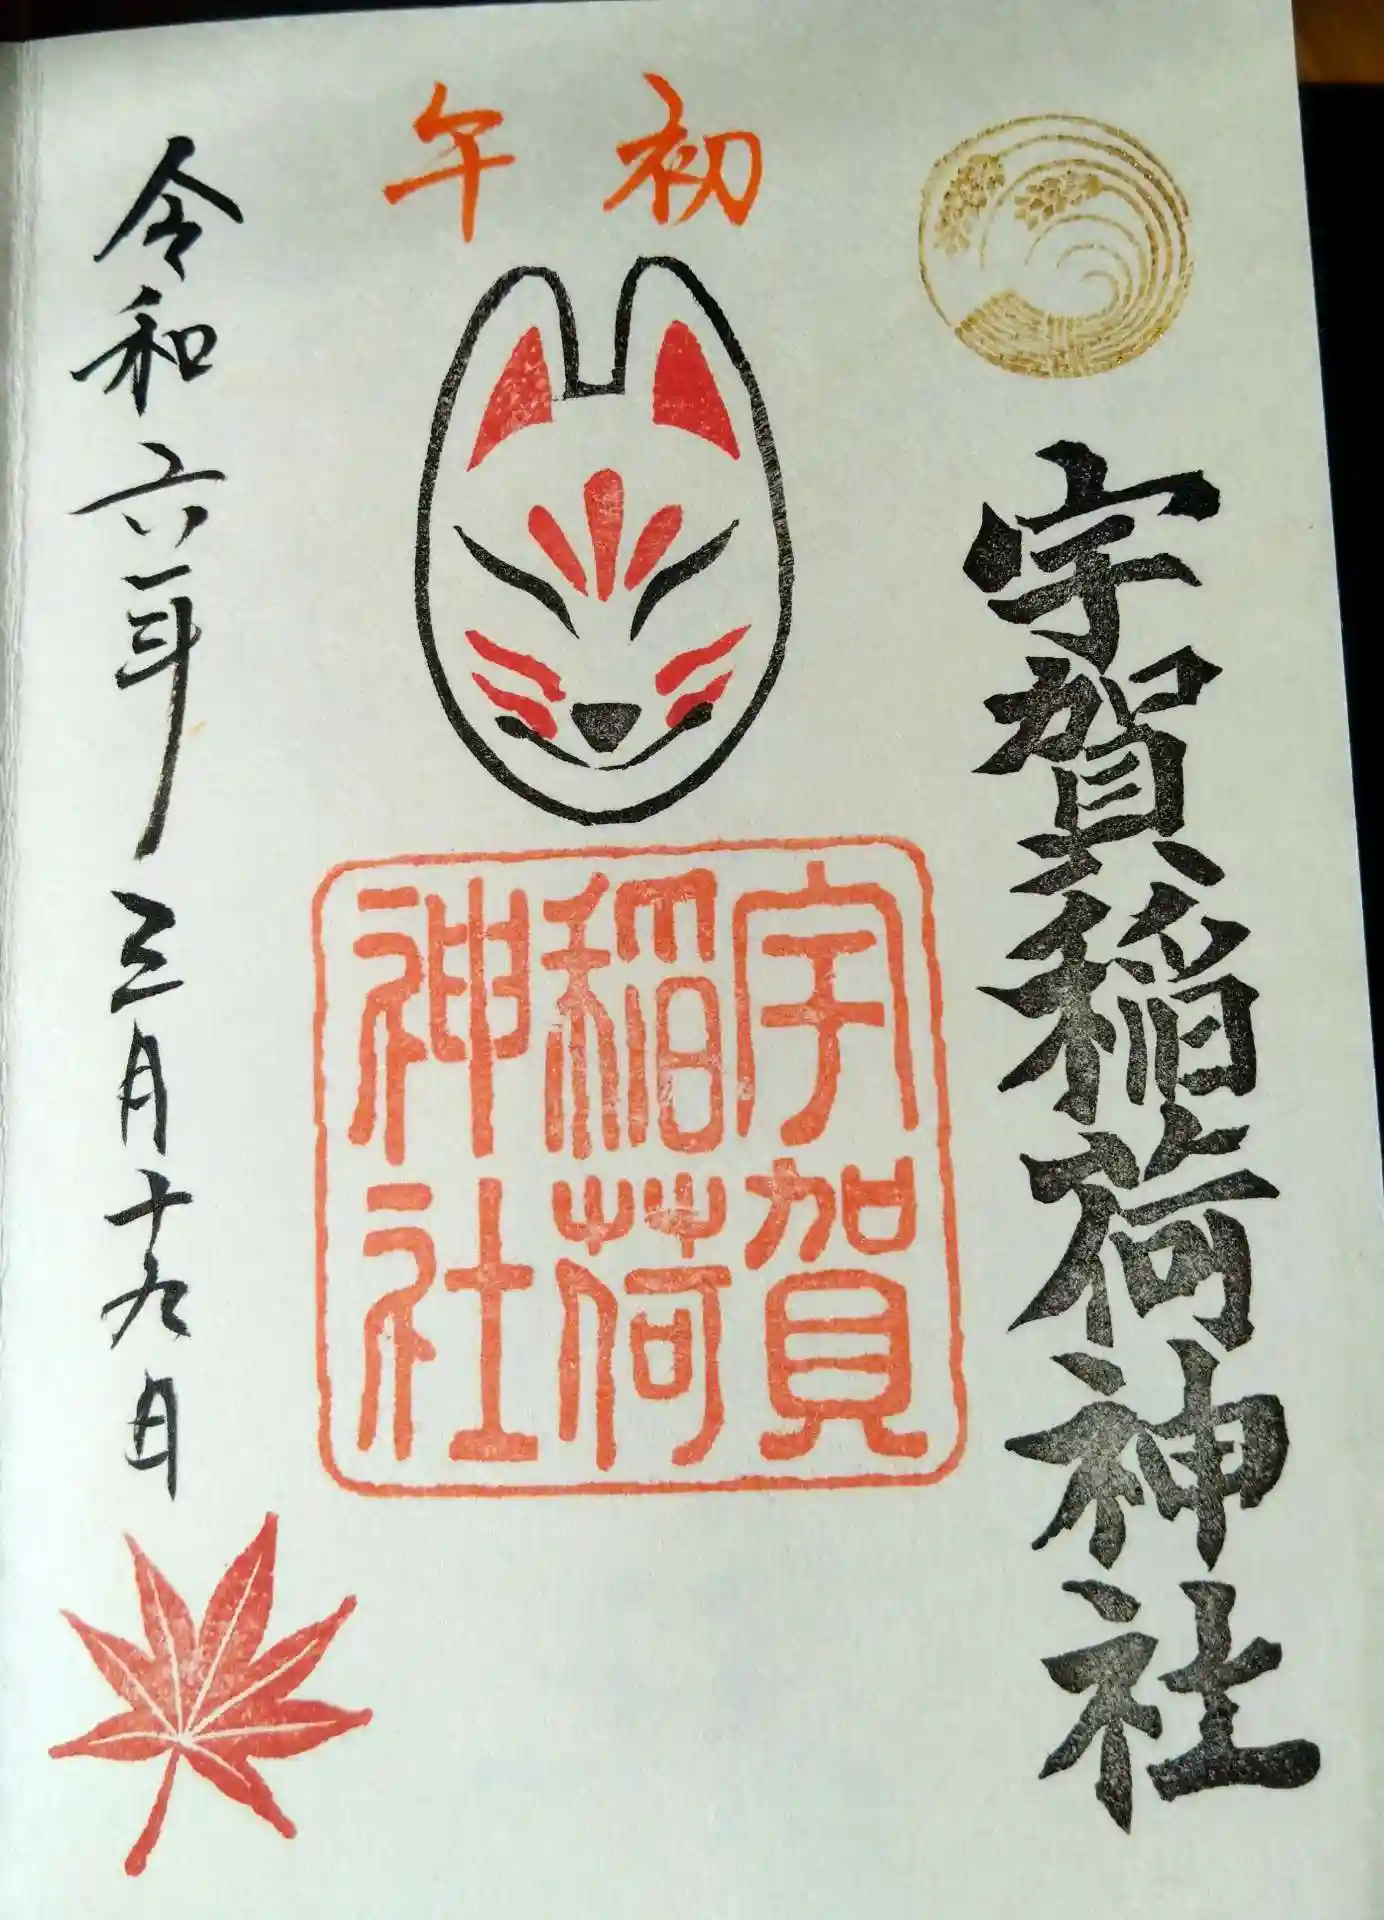 宇賀稲荷神社
初午
宇賀
稲荷
神社
令和六年三月十九日